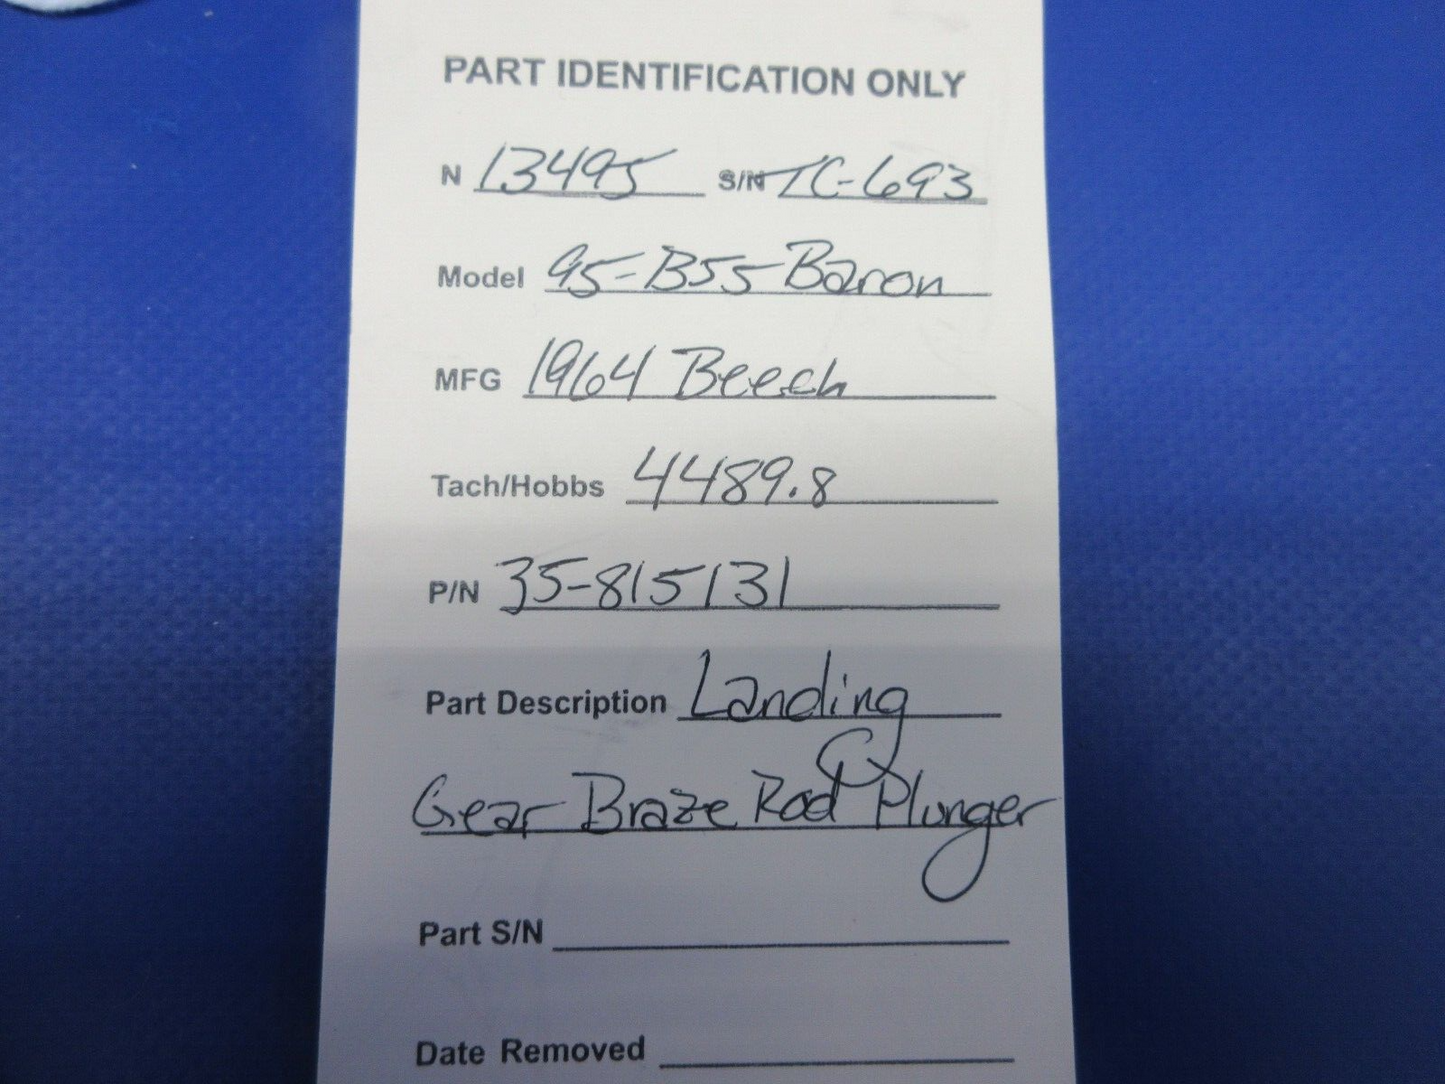 PART IDENTIFICATION ONLY
N 13495 S/N TC-693
Model 95-B55 Baron
MFG 1964 Beech
Tach/Hobbs 4489.8
P/N 35-815131
Part Description Landing
Gear Braze Rod Plunger
Part S/N
Date Removed